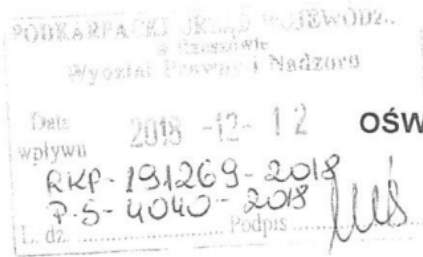 PODKARPACKI URZĄD WOJEWÓDZ..
w Rzeszowie
Wydział Prawny i Nadzoru
Data
wpływu
2018 -12- 12
OŚW
RKP-191269-2018
P.S-4040-2018
L. dz. .................... Podpis ....................